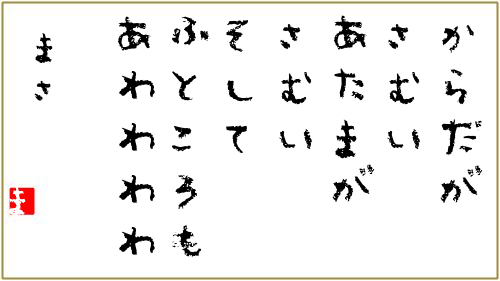 からだが
さむい
あたまが
さむい
そして
ふところも
あわわわわ
まさ
ま